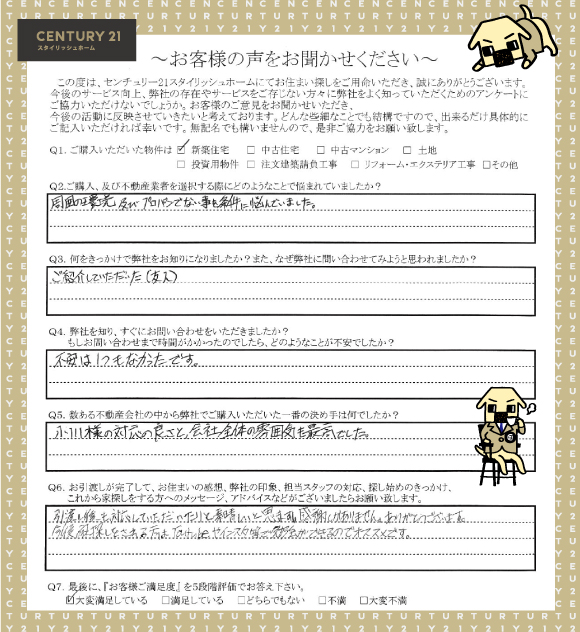 CENTURY 21
スタイリッシュホーム
～お客様の声をお聞かせください～
この度は、センチュリー21スタイリッシュホームにてお住まい探しをご用命いただき、誠にありがとうございます。
今後のサービス向上、弊社の存在やサービスをご存じない方々に弊社をよく知っていただくためのアンケートに
ご協力いただけないでしょうか。お客様のご意見をお聞かせいただき、
今後の活動に反映させていきたいと考えております。どんな些細なことでも結構ですので、出来るだけ具体的に
ご記入いただければ幸いです。無記名でも構いませんので、是非ご協力をお願い致します。
Q1. ご購入いただいた物件は ☑ 新築住宅 □ 中古住宅 □ 中古マンション □ 土地
□ 投資用物件 □ 注文建築請負工事 □ リフォーム・エクステリア工事 □その他
Q2.ご購入、及び不動産業者を選択する際にどのようなことで悩まれていましたか?
周囲の環境及びプロパンでない事を条件に悩んでいました。
Q3. 何をきっかけで弊社をお知りになりましたか?また、なぜ弊社に問い合わせてみようと思われましたか?
ご紹介していただいた(友人)
Q4. 弊社を知り、すぐにお問い合わせをいただきましたか?
もしお問い合わせまで時間がかかったのでしたら、どのようなことが不安でしたか?
不安は1つもなかったです。
Q5. 数ある不動産会社の中から弊社でご購入いただいた一番の決め手は何でしたか?
小川様の対応の良さと、会社全体の雰囲気も最高でした。
Q6. お引渡しが完了して、お住まいの感想、弊社の印象、担当スタッフの対応、探し始めのきっかけ、
これから家探しをする方へのメッセージ、アドバイスなどがございましたらお願い致します。
引渡し後も対応していただいたりと素晴しいと思います。感謝しかありません。ありがとうございます。
今後家探しをされる方は
のでオススメです。
Q7. 最後に、『お客様ご満足度』を5段階評価でお答え下さい。
☑大変満足している □満足している □どちらでもない □不満 □大変不満